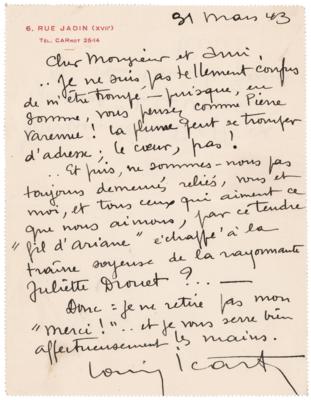 6, RUE JADIN (XVIIe)
TÉL. CARNOT 25-14
31 Mars 43
Cher Monsieur et ami,
.. Je ne suis pas tellement confus
de m'être trompé – puisque, en
somme, vous pensez comme Pierre
Varenne ! la plume peut se tromper
d'adresse ; le cœur, pas !
.. Et puis, ne sommes-nous pas
toujours demeurés reliés, vous et
moi, et tous ceux qui aiment ce
que nous aimons, par ce tendre
"fil d'ariane" échappé à la
traîne soyeuse de la rayonnante
Juliette Drouet ? ... —
Donc = je ne retire pas mon
"merci !" .. et je vous serre bien
affectueusement les mains.
Louis Icart